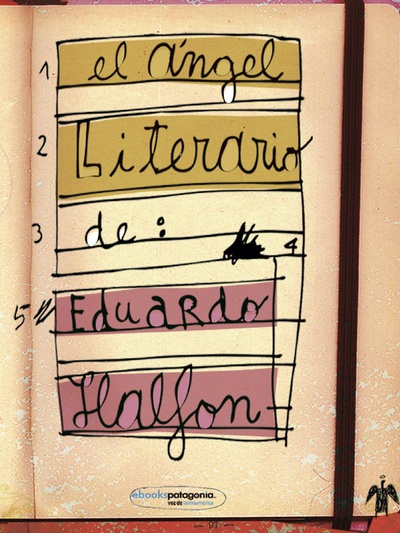 1. el ángel
2 Literario
3 de :
4
5 Eduardo
Halfon
ebookspatagonia.
voz de latinoamérica